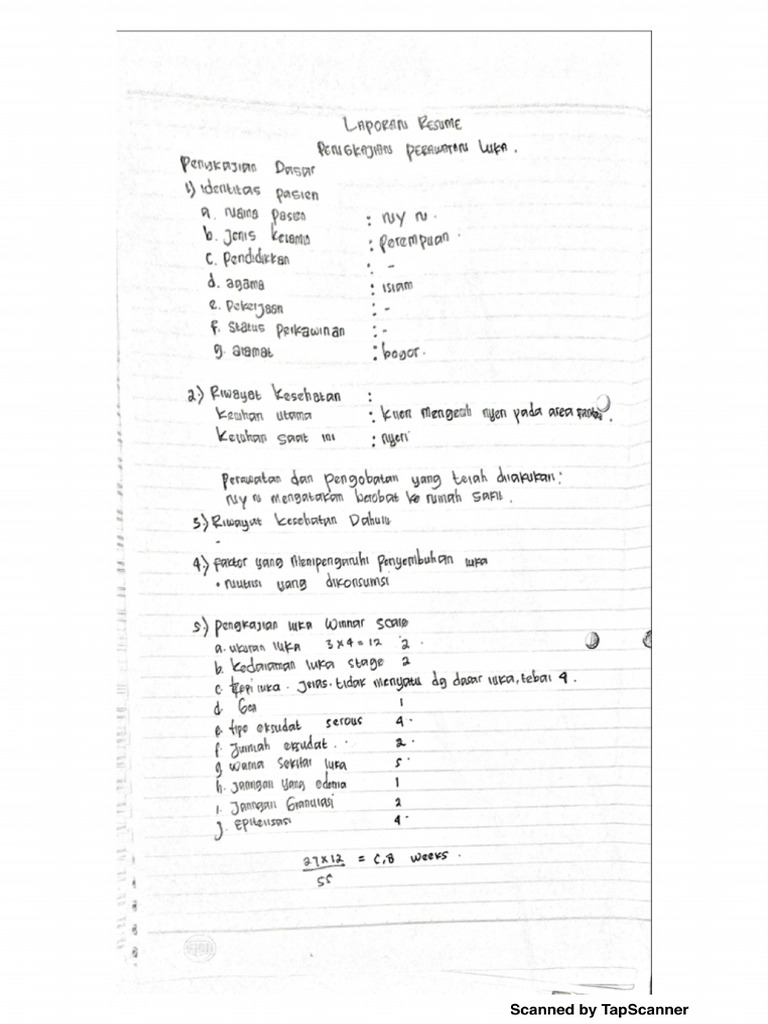 LAPORAN RESUME
PENGKAJIAN PERAWATAN LUKA.
Pengkajian Dasar
1) Identitas pasien
a. Nama pasien : Ny N.
b. Jenis kelamin : Perempuan.
c. Pendidikkan : -
d. agama : Islam
e. Pekerjaan : -
f. Status Perkawinan : -
g. alamat : bogor.
2.) Riwayat Kesehatan :
Keluhan utama : klien mengeluh nyeri pada area
Keluhan saat ini : nyeri
Perawatan dan pengobatan yang telah dilakukan :
Ny N mengatakan berobat ke rumah sakit.
3.) Riwayat Kesehatan Dahulu
-
4.) Faktor yang Mempengaruhi Penyembuhan luka
• Nutrisi yang dikonsumsi
5.) Pengkajian luka Winnar Scale
a. ukuran luka 3 x 4 = 12 2.
b. kedalaman luka stage 2
c. tepi luka. Jelas. tidak menyatu dg dasar luka, tebal 4.
d. Goa 1
e. tipo eksudat serous 4.
f. Jumlah eksudat. 2.
g. Warna Sekitar luka 5.
h. Jaringan yang edema 1
i. Jaringan Granulasi 2
j. Epitelisasi 4.
27 x 12 = 5,8 weeks.
55
Scanned by TapScanner